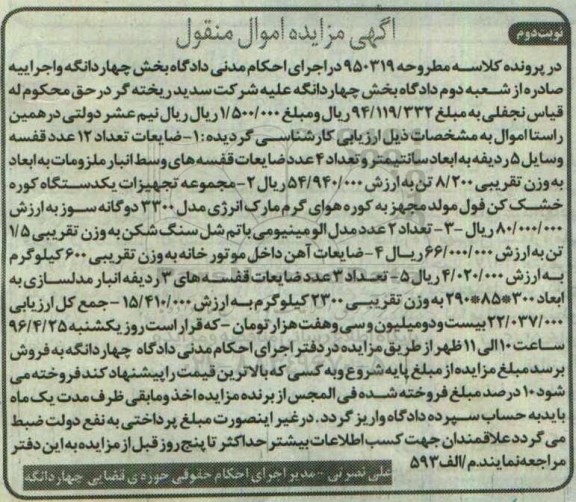 نوبت دوم
آگهی مزایده اموال منقول
در پرونده کلاسه مطروحه ۹۵۰۳۱۹ در اجرای احکام مدنی دادگاه بخش چهاردانگه و اجراییه
صادره از شعبه دوم دادگاه بخش چهاردانگه علیه شرکت سدید ریخته گر در حق محکوم له
قیاس نجفلی به مبلغ ۹۴/۱۱۹/۳۳۲ ریال و مبلغ ۱/۵۰۰/۰۰۰ ریال ریال نیم عشر دولتی در همین
راستا اموال به مشخصات ذیل ارزیابی کارشناسی گردیده: ۱- ضایعات تعداد ۱۲ عدد قفسه
وسایل ۵ ردیفه به ابعاد سانتیمتر و تعداد ۴ عدد ضایعات قفسه های وسط انبار ملزومات به ابعاد
به وزن تقریبی ۸/۲۰۰ تن به ارزش ۵۴/۹۴۰/۰۰۰ ریال ۲- مجموعه تجهیزات یکدستگاه کوره
خشک کن فول مولد مجهز به کوره هوای گرم مارک انرژی مدل ۳۳۰۰ دوگانه سوز به ارزش
۸۰/۰۰۰/۰۰۰ ریال -۳- تعداد ۲ عدد مدل الومینیومی باتم شل سنگ شکن به وزن تقریبی ۱/۵
تن به ارزش ۶۶/۰۰۰/۰۰۰ ریال ۴- ضایعات آهن داخل موتور خانه به وزن تقریبی ۶۰۰ کیلوگرم
به ارزش ۴/۰۲۰/۰۰۰ ریال ۵- تعداد ۳ عدد ضایعات قفسه های ۳ ردیفه انبار مدلسازی به
ابعاد ۳۰۰*۸۵*۲۹۰ به وزن تقریبی ۲۳۰۰ کیلوگرم به ارزش ۱۵/۴۱۰/۰۰۰- جمع کل ارزیابی
۲۲/۰۳۷/۰۰۰ بیست و دو میلیون و سی و هفت هزار تومان - که قرار است روز یکشنبه ۹۶/۴/۲۵
ساعت ۱۰ الی ۱۱ ظهر از طریق مزایده در دفتر اجرای احکام مدنی دادگاه چهاردانگه به فروش
برسد مبلغ مزایده از مبلغ پایه شروع و به کسی که بالاترین قیمت را پیشنهاد کند فروخته می
شود ۱۰ درصد مبلغ فروخته شده فی المجلس از برنده مزایده اخذ و مابقی ظرف مدت یک ماه
باید به حساب سپرده دادگاه واریز گردد. در غیر اینصورت مبلغ پرداختی به نفع دولت ضبط
می گردد علاقمندان جهت کسب اطلاعات بیشتر حداکثر تا پنج روز قبل از مزایده به این دفتر
مراجعه نمایند. م/الف ۵۹۳
علی نصرتی - مدیر اجرای احکام حقوقی حوزه ی قضایی چهاردانگه